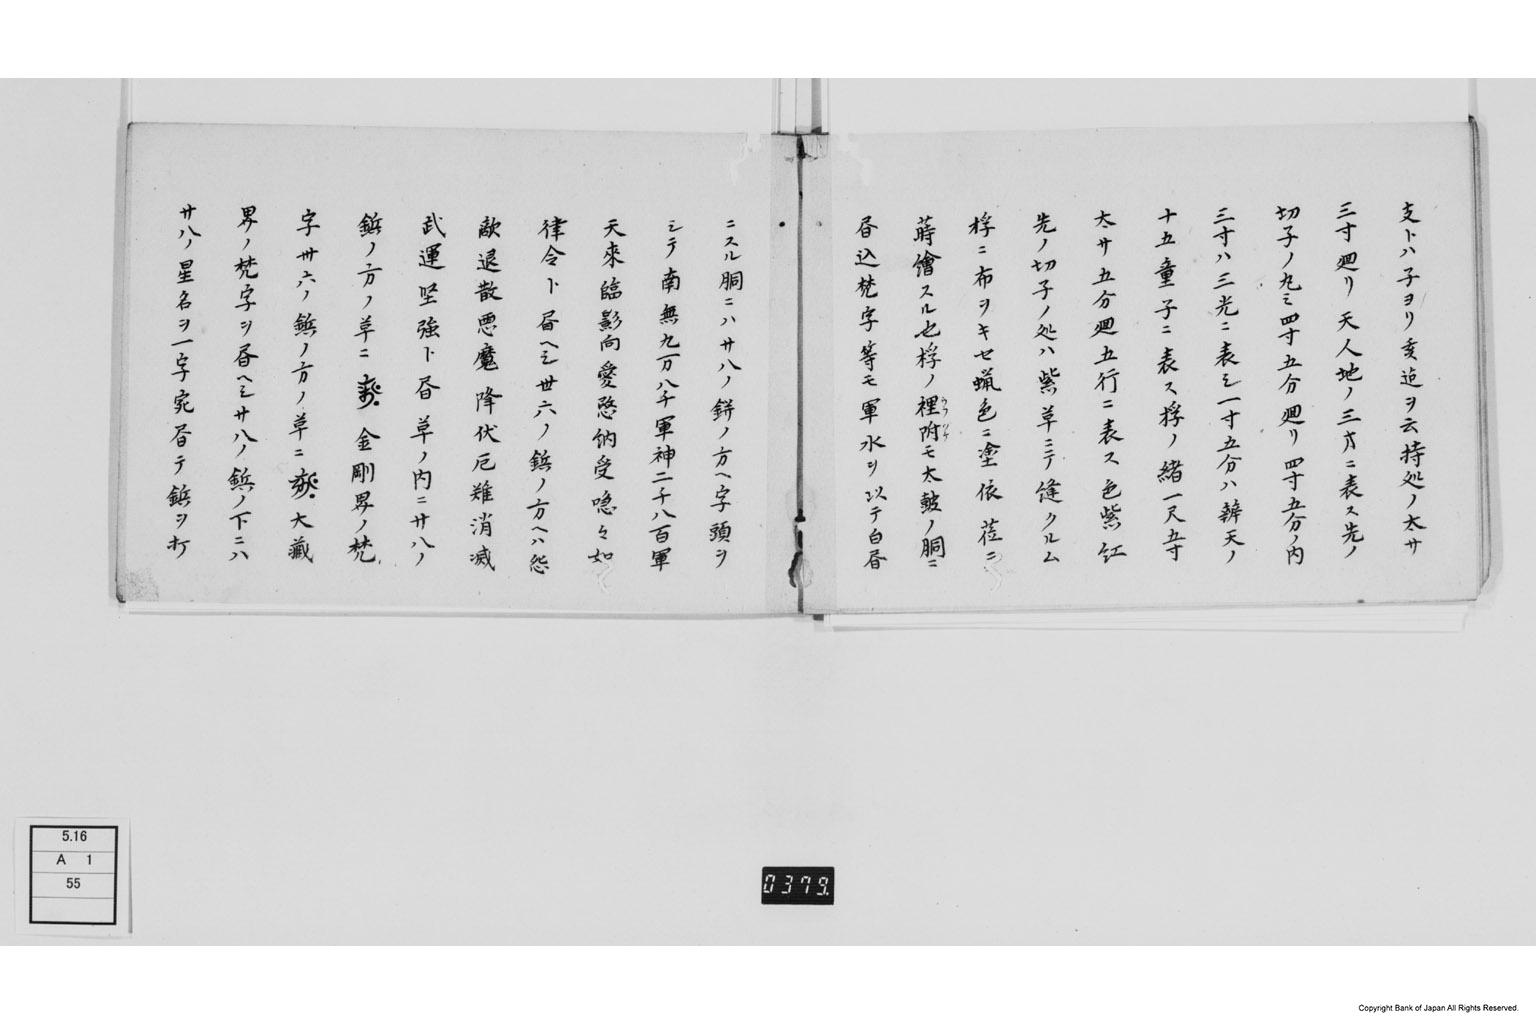 支トハ子ヨリ亥迠ヲ云持処ノ太サ
三寸廻リ天人地ノ三才ニ表ス先ノ
切子ノ丸ミ四寸五分廻リ四寸五分ノ内
三寸ハ三光ニ表シ一寸五分ハ辨天ノ
十五童子ニ表ス桴ノ緒一尺五寸
太サ五分廻五行ニ表ス色紫紅
先ノ切子ノ処ハ紫草ニテ縫クルム
桴ニ布ヲキセ蝋色ニ塗依莅ニ
蒔繪スル也桴ノ裡附モ太鼓ノ胴ニ
昏込梵字等モ軍水ヲ以テ白昏
ニスル胴ニハ廿八ノ鋲ノ方ヘ字頭ヲ
シテ南無九万八千軍神二千八百軍
天來臨影向愛愍納受急々如
律令ト昏ヘシ卅六ノ鋲ノ方ヘハ怨
敵退散悪魔降伏厄難消滅
武運堅強ト昏草ノ内ニ廿八ノ
鋲ノ方ノ草ニ 金剛界ノ梵
字卅六ノ鋲ノ方ノ草ニ 大藏
界ノ梵字ヲ昏ヘシ廿八ノ鋲ノ下ニハ
廿八ノ星名ヲ一字宛昏テ鋲ヲ打
5.16
A 1
55
0379
Copyright Bank of Japan All Rights Reserved.